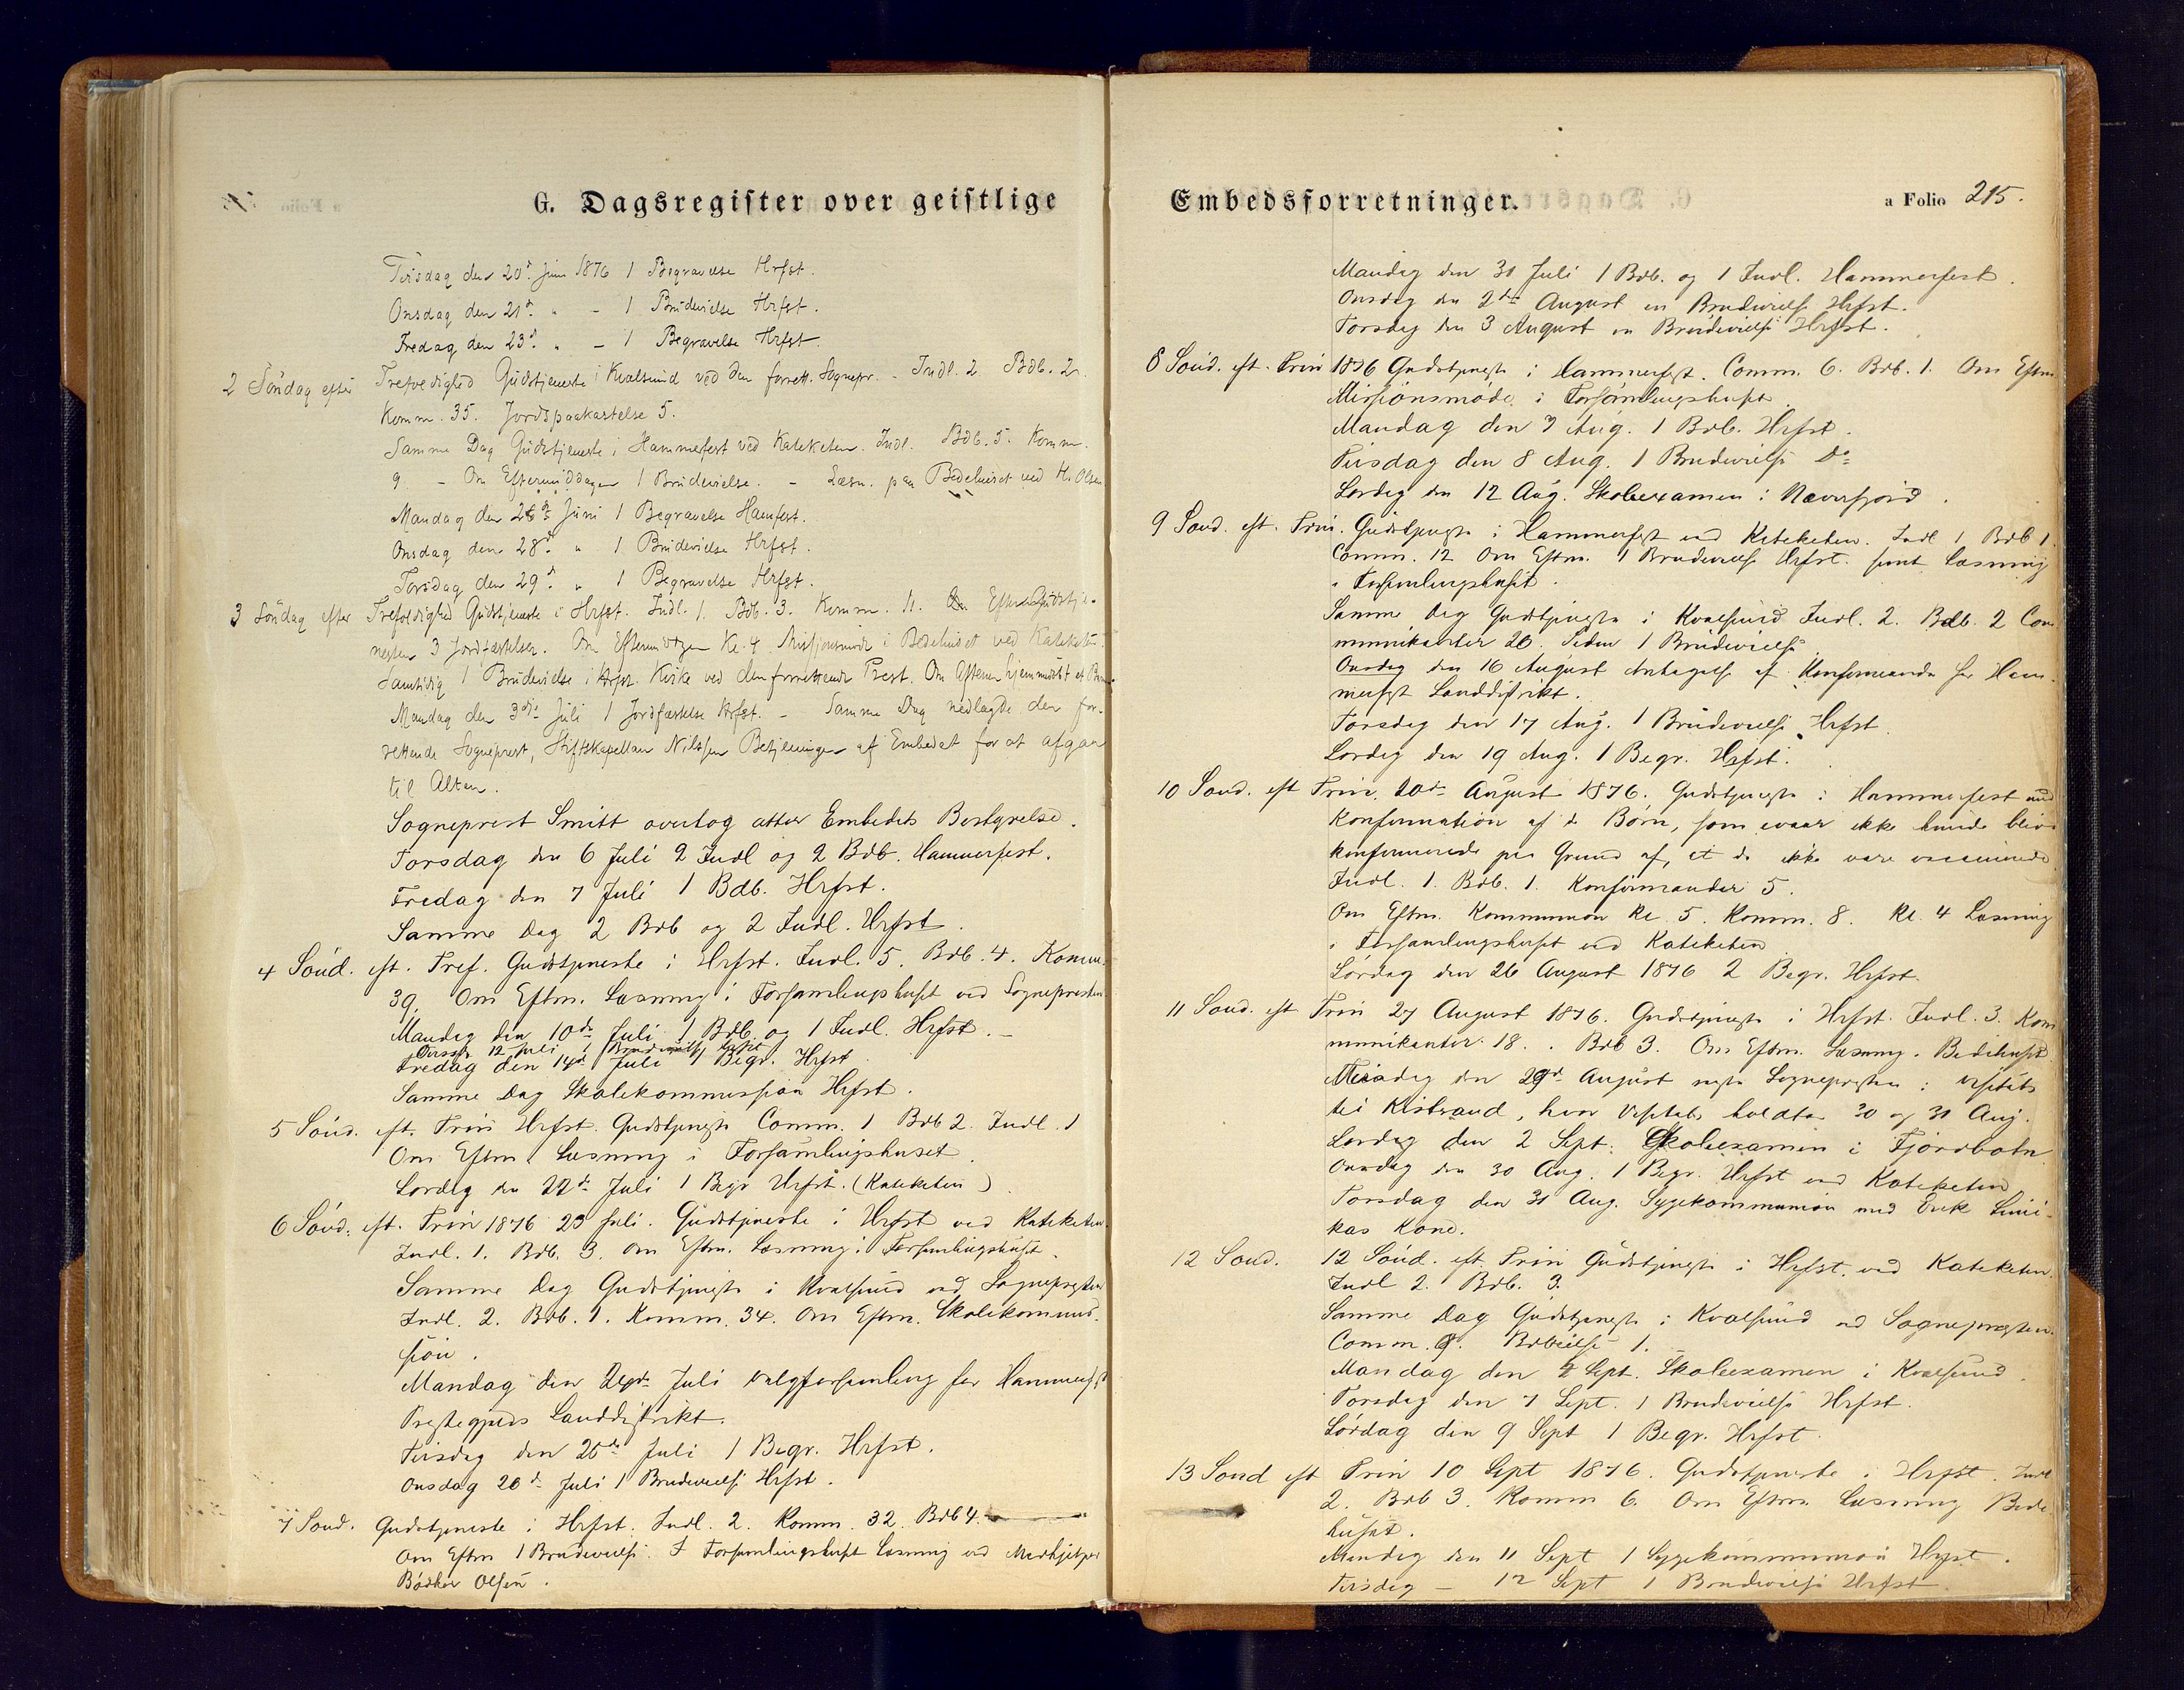 G. Dagsregister over geistlige
Tirsdag den 20d. Juni 1876 1 Begravelse Hrfst.
Onsdag den 21d. " - 1 Brudevielse Hrfst.
Fredag den 23d. " - 1 Begravelse Hrfst.
2 Söndag efter Trefoldighed Gudstjeneste i Kvalsund ved den forrett. Sognepr. - Indl. 2 Bdb. 2.
Komm. 35. Jordspaakastelse 5.
Samme Dag Gudstjeneste i Hammerfest ved Kateketen. Indl. Bdb. 5. Komm.
9 - Om Eftermiddagen 1 Brudevielse. - Læsn. paa Bedehuset ved H. Olsen
Mandag den 26d. Juni 1 Begravelse Hamfest.
Onsdag den 28d. " 1 Brudevielse Hrfst.
Torsdag den 29d. " 1 Begravelse Hrfst.
3 Söndag efter Trefoldighed Gudstjeneste i Hrfst. Indl. 1. Bdb. 3. Komm. 11. Efter Gudstje-
nesten 3 Jordfæstelser. Om Eftermidagen Kl. 4 Missionsmöde i Bedehuset ved Kateketen.
Samtidig 1 Brudevielse i Hrfst. Kirke ved den forrettende Prest. Om Aftenen hjemmedøbt et
Mandag den 3die Juli 1 Jordfæstelse Hrfst. - Samme Dag nedlagde den for-
rettende Sogneprest, Stiftskapellan Nilssen Betjeningen af Embedet for at afgaa
til Alten.
Sogneprest Smitt overtog atter Embedets Bestyrelse.
Torsdag den 6 Juli 2 Indl og 2 Bdb. Hammerfest.
Fredag den 7 Juli 1 Bdb. Hrfst.
Samme Dag 2 Bdb og 2 Indl. Hrfst.
4 Sönd. eft. Tref. Gudstjeneste i Hrfst. Indl. 5. Bdb. 4. Komm.
39. Om Eftm. Læsning i Forsamlingshuset ved Sognepresten
Mandag den 10de Juli 1 Bdb og 1 Indl. Hrfst. -
12 Juli 1 Brudevielse
Fredag den 14de Juli 1 Begr. Hrfst
Samme Dag Skolekommission Hrfst.
5 Sönd. eft. Trin Hrfst. Gudstjeneste Comm. 1 Bdb 2. Indl. 1
Om Eftm. Læsning i Forsamlingshuset.
Lørdag den 22de Juli 1 Begr Hrfst. (Kateketen)
6 Sönd. eft. Trin 1876 23 Juli. Gudstjeneste i Hrfst ved Kateketen.
Indl. 1. Bdb. 3. Om Eftm. Læsning i Forsamlingshuset.
Samme Dag Gudstjeneste i Kvalsund ved Sognepresten
Indl. 2. Bdb. 1. Komm. 34. Om Eftm. Skolekommis-
sion.
Mandag den 24de Juli Valgforsamling for Hammerfest
Prestegjelds Landdistrikt.
Tirsdag den 25de Juli 1 Begr. Hrfst.
Onsdag 26de Juli 1 Brudevielse Hrfst.
7 Sönd. Gudstjeneste i Hrfst. Indl. 2. Komm. 32. Bdb 4.
Om Eftm 1 Brudevielse. I Forsamlingshuset Læsning ved Medhjelper
Bødker Olsen.
Embedsforretninger.
a Folio 215.
Mandag den 31 Juli 1 Bdb. og 1 Indl. Hammerfest.
Onsdag den 2den August en Brudevielse Hrfst.
Torsdag den 3 August en Brudevielse Hrfst.
8 Sönd. eft. Trin 1876 Gudstjeneste i Hammerfest. Comm. 6. Bdb. 1. Om Eftm.
Missionsmöde i Forsamlingshuset.
Mandag den 7 Aug. 1 Bdb. Hrfst.
Tirsdag den 8 Aug. 1 Brudevielse Do
Lørdag den 12 Aug. Skoleexamen i Næverfjord.
9 Sönd. eft. Trin. Gudstjeneste i Hammerfest ved Kateketen. Indl 1 Bdb 1.
Comm. 12 Om Eftm. 1 Brudevielse Hrfst. samt Læsning
i Forsamlingshuset.
Samme Dag Gudstjeneste i Kvalsund Indl. 2. Bdb. 2 Com-
munikanter 26. Siden 1 Brudevielse.
Onsdag den 16 August Antagelse af Konfirmander for Ham-
merfest Landdistrikt.
Torsdag den 17 Aug. 1 Brudevielse Hrfst.
Lørdag den 19 Aug. 1 Begr. Hrfst.
10 Sönd. eft Trin. 20de August 1876. Gudstjeneste i Hammerfest med
Konfirmation af de Børn, som ikke kunde blive
konfirmerede paa Grund af, at de ikke vare vaccinerede.
Indl. 1. Bdb. 1. Konfirmander 5.
Om Eftm. Kommunion Kl. 5. Komm. 8. Kl. 4 Læsning
i Forsamlingshuset ved Kateketen
Lördag den 26 August 1876 2 Begr. Hrfst.
11 Sönd. eft Trin 27 August 1876. Gudstjeneste i Hrfst. Indl. 3. Kom
munikanter 18. Bdb 3. Om Eftm. Læsning i Bedehuset
den 29de August Sognepresten
til Kistrand, hvor holdtes 30 og 31 Aug.
Lørdag den 2 Sept. Skoleexamen i Fjordbotn
Onsdag den 30 Aug. 1 Begr. Hrfst ved Kateketen
Torsdag den 31 Aug. Sygekommunion med Erik
kas Kone.
12 Sönd. 12 Sönd. eft. Trin Gudstjeneste i Hrfst. ved Kateketen.
Indl 2. Bdb. 3.
Samme Dag Gudstjeneste i Kvalsund ved Sognepresten.
Comm. 9. 1.
Mandag den 4 Sept. Skoleexamen i Kvalsund.
Torsdag den 7 Sept. 1 Brudevielse Hrfst.
Lördag den 9 Sept 1 Begr. Hrfst.
13 Sönd eft Trin 10 Sept 1876. Gudstjeneste i Hrfst. Indl
2. Bdb 3. Komm 6. Om Eftm. Læsning Bede
huset.
Mandag den 11 Sept 1 Sygekommunion Hrfst.
Tirsdag - 12 Sept 1 Brudevielse Hrfst.